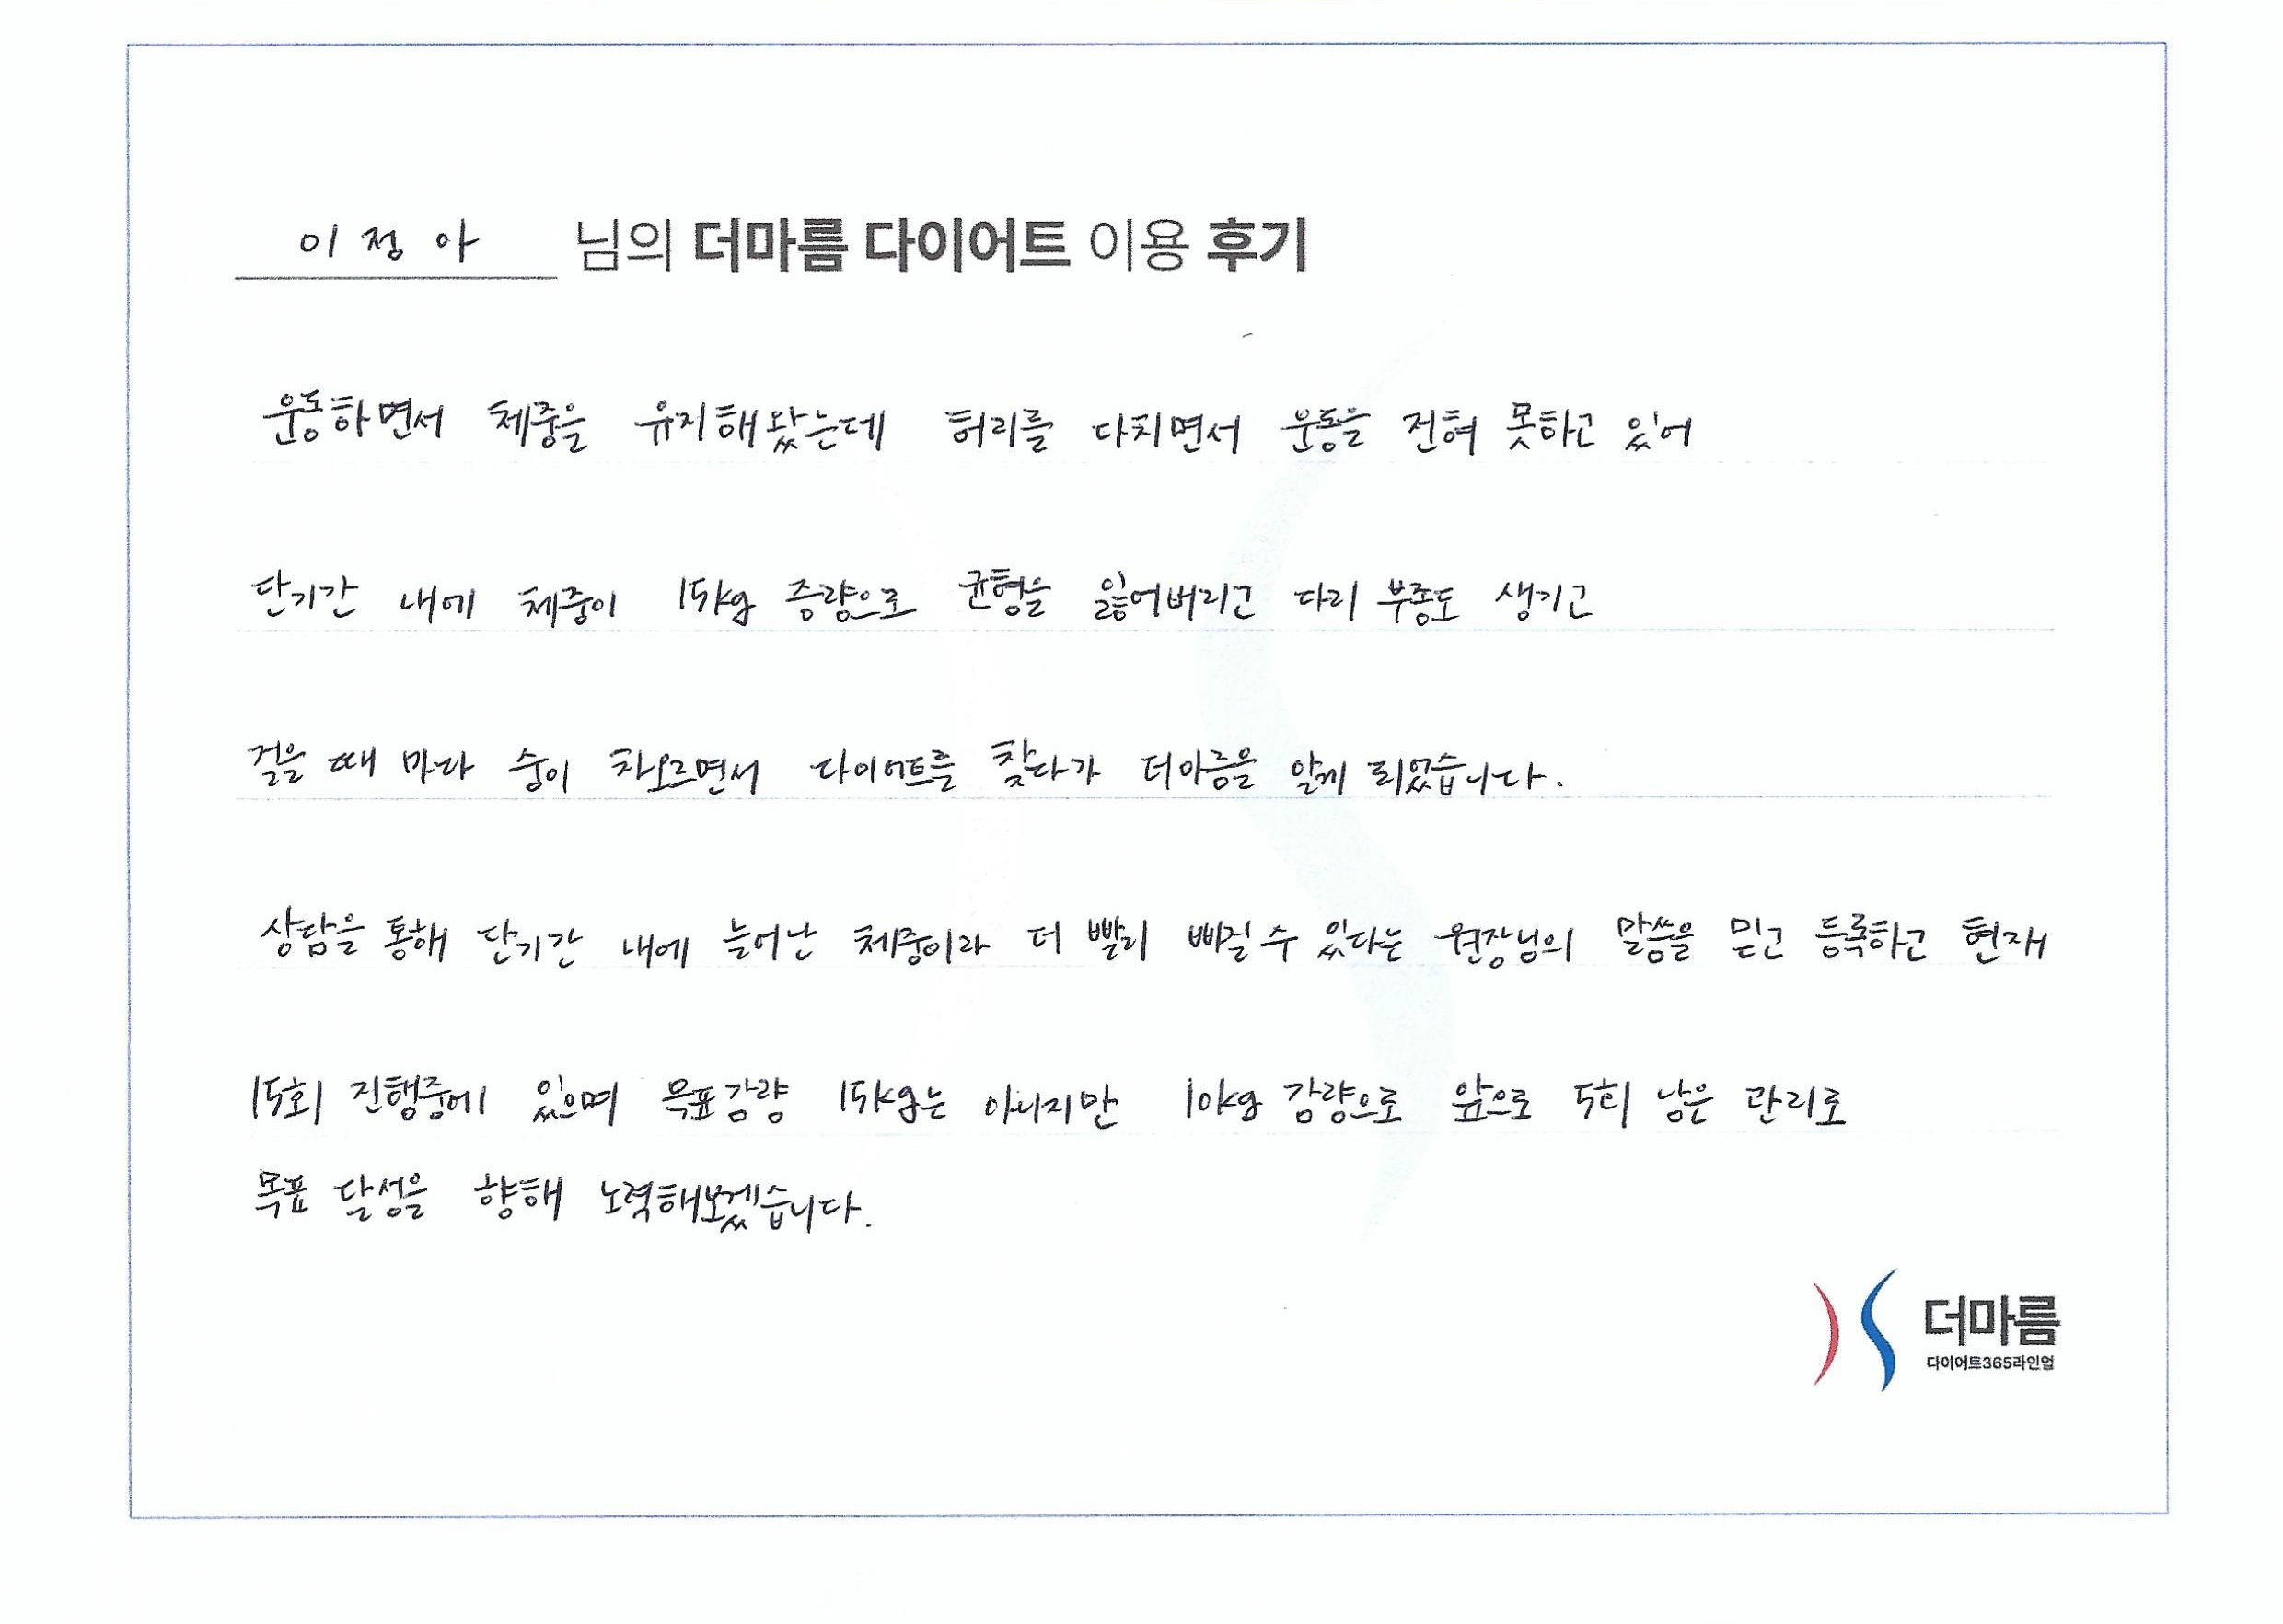 이정아 님의 더마름 다이어트 이용 후기
운동하면서 체중을 유지해왔는데 허리를 다치면서 운동을 전혀 못하고 있어
단기간 내에 체중이 15kg 증량으로 균형을 잃어버리고 다리 부종도 생기고
걸을 때 마다 숨이 차오르면서 다이어트를 찾다가 더마름을 알게 되었습니다.
상담을 통해 단기간 내에 늘어난 체중이라 더 빨리 빠질 수 있다는 원장님의 말씀을 믿고 등록하고 현재
15회 진행중에 있으며 목표감량 15kg는 아니지만 10kg 감량으로 앞으로 5회 남은 관리로
목표 달성을 향해 노력해보겠습니다.
더마름
다이어트365라인업